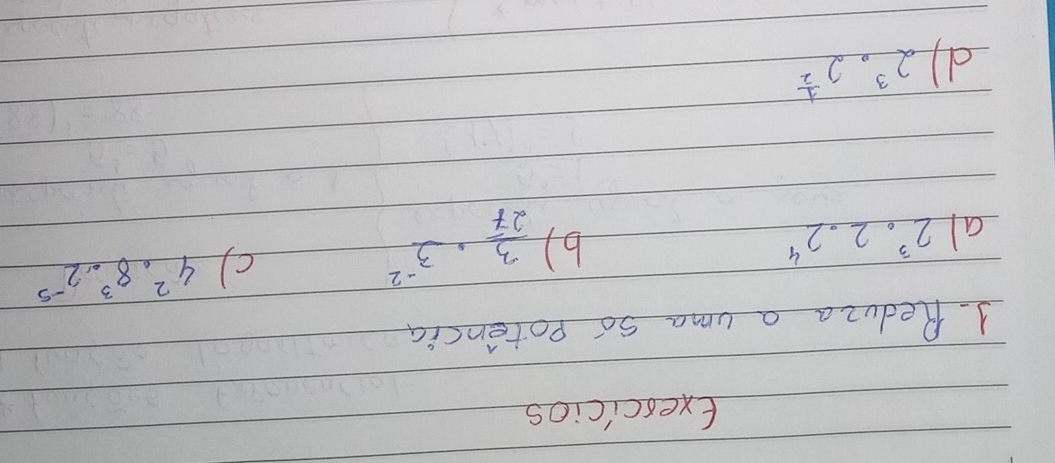 Exercícios
1- Reduza a uma só Potência
a) 2³ . 2 . 2⁴ b) 3/27 . 3⁻² c) 4² . 8³ . 2⁻⁵
d) 2³ . 2^(1/2)